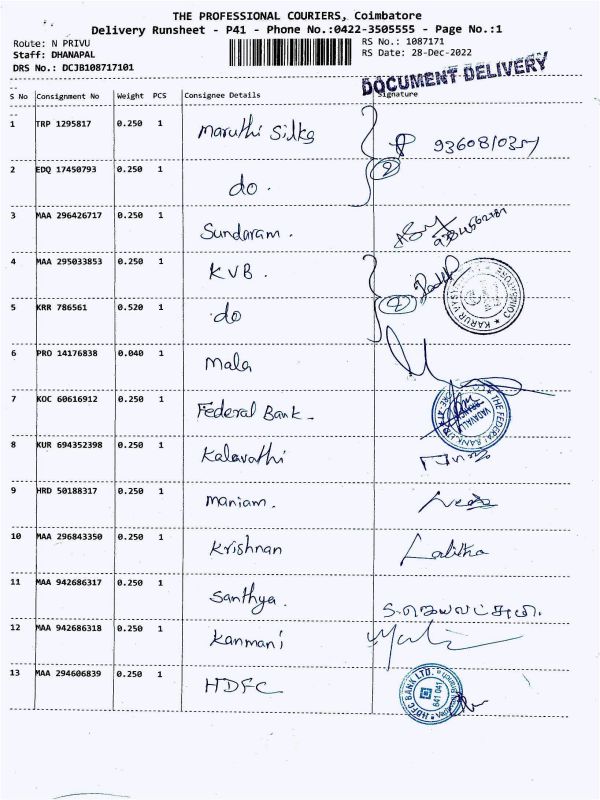 THE PROFESSIONAL COURIERS, Coimbatore
Delivery Runsheet - P41 - Phone No.:0422-3505555 - Page No.:1
Route: N PRIVU
RS No.: 1087171
Staff: DHANAPAL
RS Date: 28-Dec-2022
DRS No.: DCJB108717101
DOCUMENT DELIVERY
S No Consignment No Weight PCS Consignee Details Signature
1 TRP 1295817 0.250 1 Maruthi Silks
2 EDQ 17450793 0.250 1 do.
3 MAA 296426717 0.250 1 Sundaram.
4 MAA 295033853 0.250 1 KVB.
5 KRR 786561 0.520 1 do
6 PRO 14176838 0.040 1 Mala
7 KOC 60616912 0.250 1 Federal Bank -
THE FEDERAL BANK LTD
VADAVALLI
8 KUR 694352398 0.250 1 Kalavathi
9 HRD 50188317 0.250 1 Maniam.
10 MAA 296843350 0.250 1 Krishnan Lalitha
11 MAA 942686317 0.250 1 Santhya.
12 MAA 942686318 0.250 1 Kanmani
13 MAA 294606839 0.250 1 HDFC
HDFC BANK LTD.
641 041